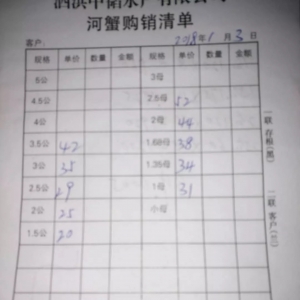 泗洪中储水产有限公司
河蟹购销清单
客户: 2018年1月3日
规格 单价 数量 金额 规格 单价 数量 金额
5公 3母
4.5公 2.5母 52
4公 2母 44
3.5公 42 1.68母 38
3公 35 1.35母 34
2.5公 29 1母 31
2公 25 小母
1.5公 20
一联 存根(黑)
二联 客户(三)